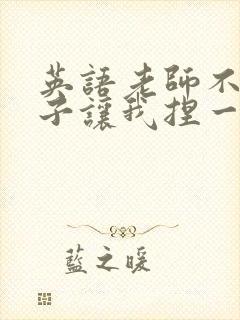 英語老師不
子讓我捏一
藍之暖